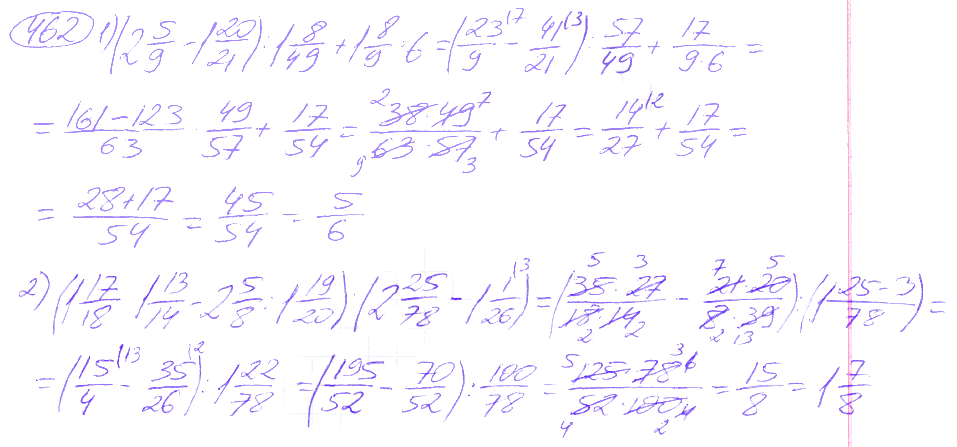 462 1) (2 5/9 - 1 20/21) : 1 8/49 + 1 8/9 : 6 = (23/9 \7 - 41/21 \3) : 57/49 + 17/(9·6) =
= (161-123)/63 · 49/57 + 17/54 = (38·49)/(63·57) + 17/54 = 14/27 \2 + 17/54 =
= (28+17)/54 = 45/54 = 5/6
2) (1 17/18 · 1 13/14 - 2 5/8 : 1 19/20) : (2 25/78 - 1 1/26 \3) = ((35·27)/(18·14) - (21·20)/(8·39)) : (1 (25-3)/78) =
= (15/4 \13 - 35/26 \2) : 1 22/78 = (195/52 - 70/52) : 100/78 = (125·78)/(52·100) = 15/8 = 1 7/8